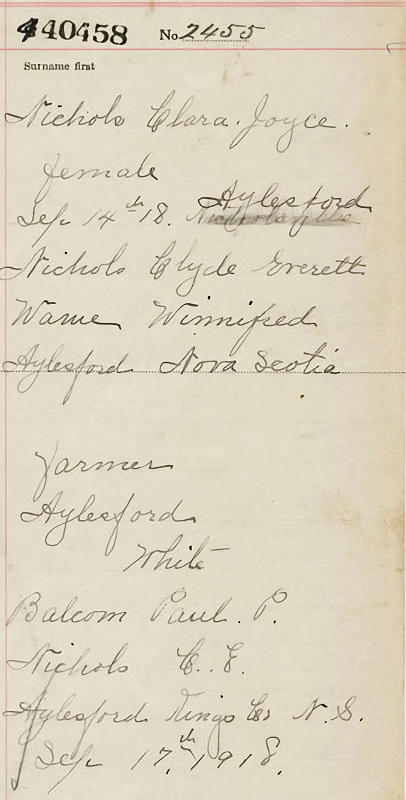 440458 No 2455
Surname first
Nichols Clara Joyce.
female
Aylesford
Sep 14th 18.
Nichols Clyde Everett
Wame Winnifred
Aylesford Nova Scotia
Farmer
Aylesford
White
Balcom Paul. P.
Nichols C. E.
Aylesford Kings Co N.S.
Sep 17th 1918.